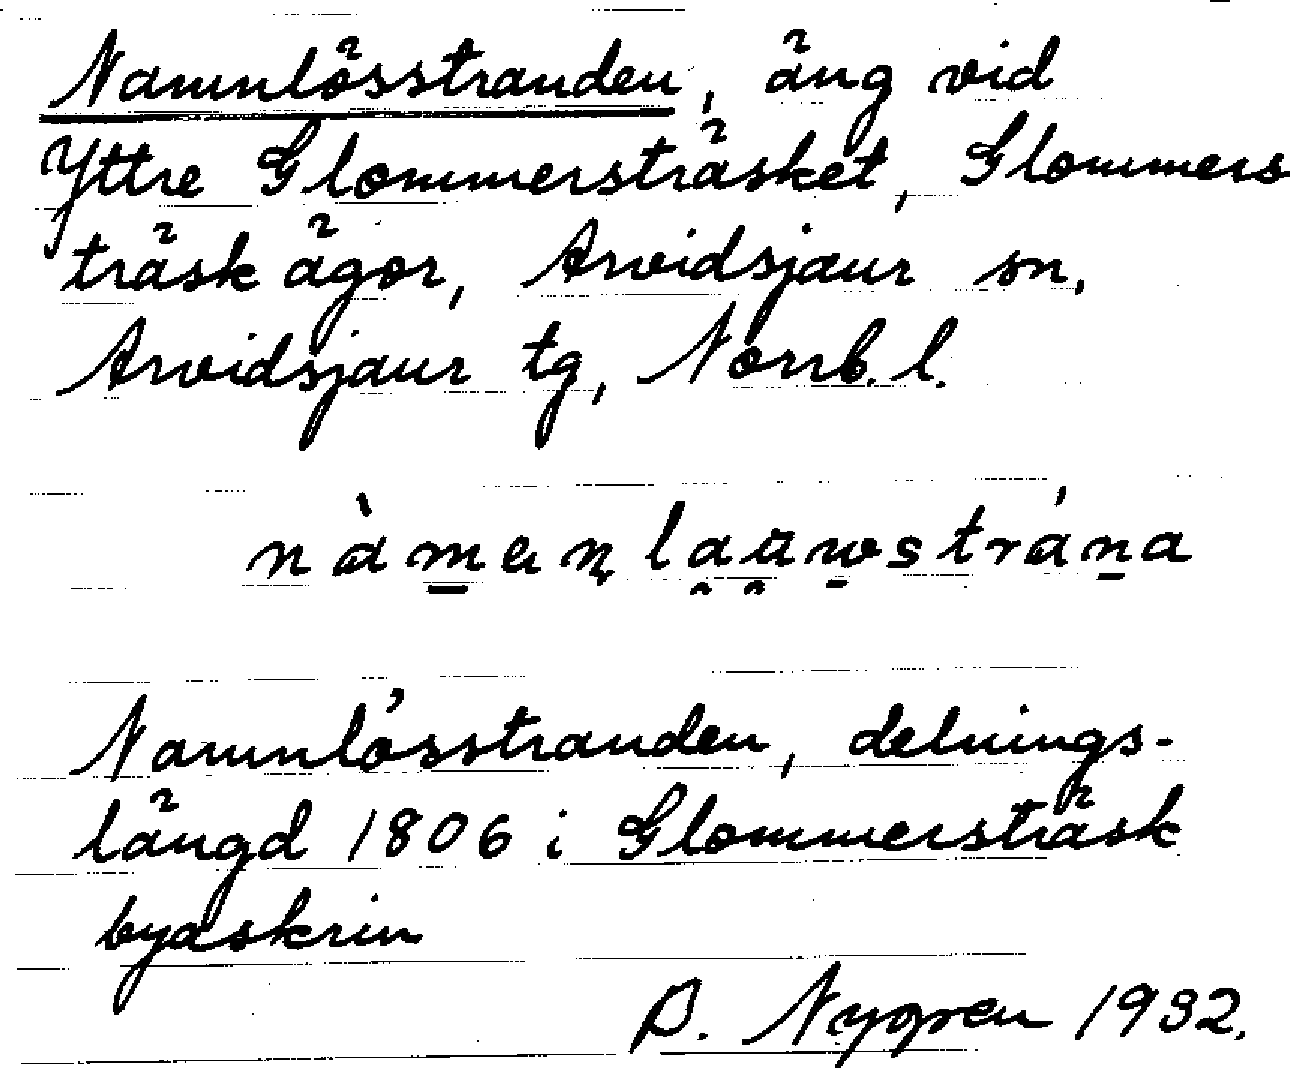 Namnlösstranden, äng vid
Yttre Glommersträsket, Glommers
träsk ägor, Arvidsjaur sn,
Arvidsjaur tg, Norrb. l.
nàmenlauwstrána
Namnlösstranden, delnings-
längd 1806 i Glommersträsk
byaskrin
B. Nygren 1932.